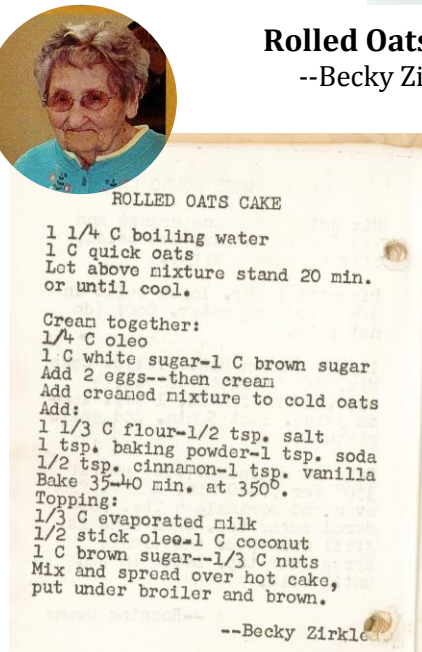 Rolled Oats
--Becky Zi
ROLLED OATS CAKE
1 1/4 C boiling water
1 C quick oats
Let above mixture stand 20 min.
or until cool.
Cream together:
1/4 C oleo
1 C white sugar-1 C brown sugar
Add 2 eggs--then cream
Add creamed mixture to cold oats
Add:
1 1/3 C flour-1/2 tsp. salt
1 tsp. baking powder-1 tsp. soda
1/2 tsp. cinnamon-1 tsp. vanilla
Bake 35-40 min. at 350°.
Topping:
1/3 C evaporated milk
1/2 stick oleo-1 C coconut
1 C brown sugar--1/3 C nuts
Mix and spread over hot cake,
put under broiler and brown.
--Becky Zirkle